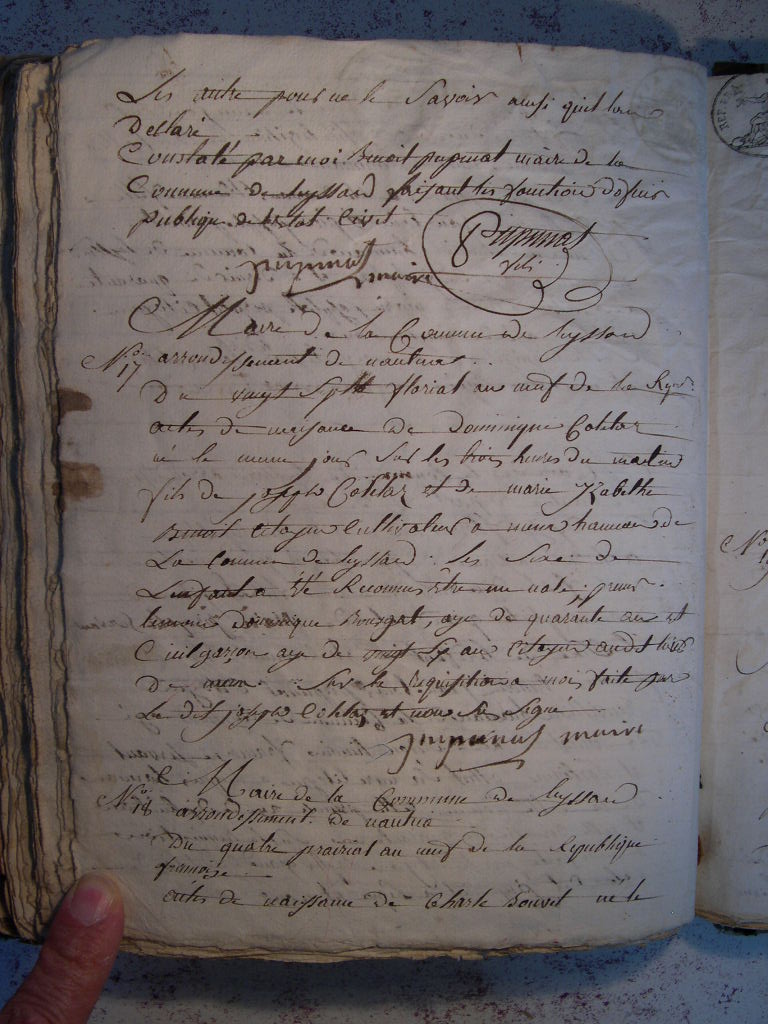 Les autre pour ne le Savoir ausi quil lon
Declaré
Constaté par moi Benoit pupunat maire de la
Commune de lyssard faisant les fonction dofisier
publique de letat Civil
Pupunat
fils
pupunat maire
Maire de la Commune de lyssard
No. 17 arrondissement de nantua
Du vingt Sptt florial an neuf de la Repu.
actes de naisance de Dominique Cohtaz
né le meme jour Sur les trois heures du matin
fils de joseph Cohtaz et de marie Izabethe
Benoit Citoyen Cultivateur a hameau de
La Commune de lyssard. les Sexe de
Lenfant a été Reconnu être un male, premier
temoin Dominique Bousgat, age de quarante an et
Civil garson age de vingt Six an Citoyen audit lieu
De Sur le Requisition a moi faite par
Le dit joseph Cohtaz et non Signé
pupunat maire
Maire de la Commune de lyssard
No. 18 arrondissement de nantua
Du quatre prairial an neuf de la Republique
fransoise
actes de naissance de Charle Bouvet né le
REP. FRA
No. 1